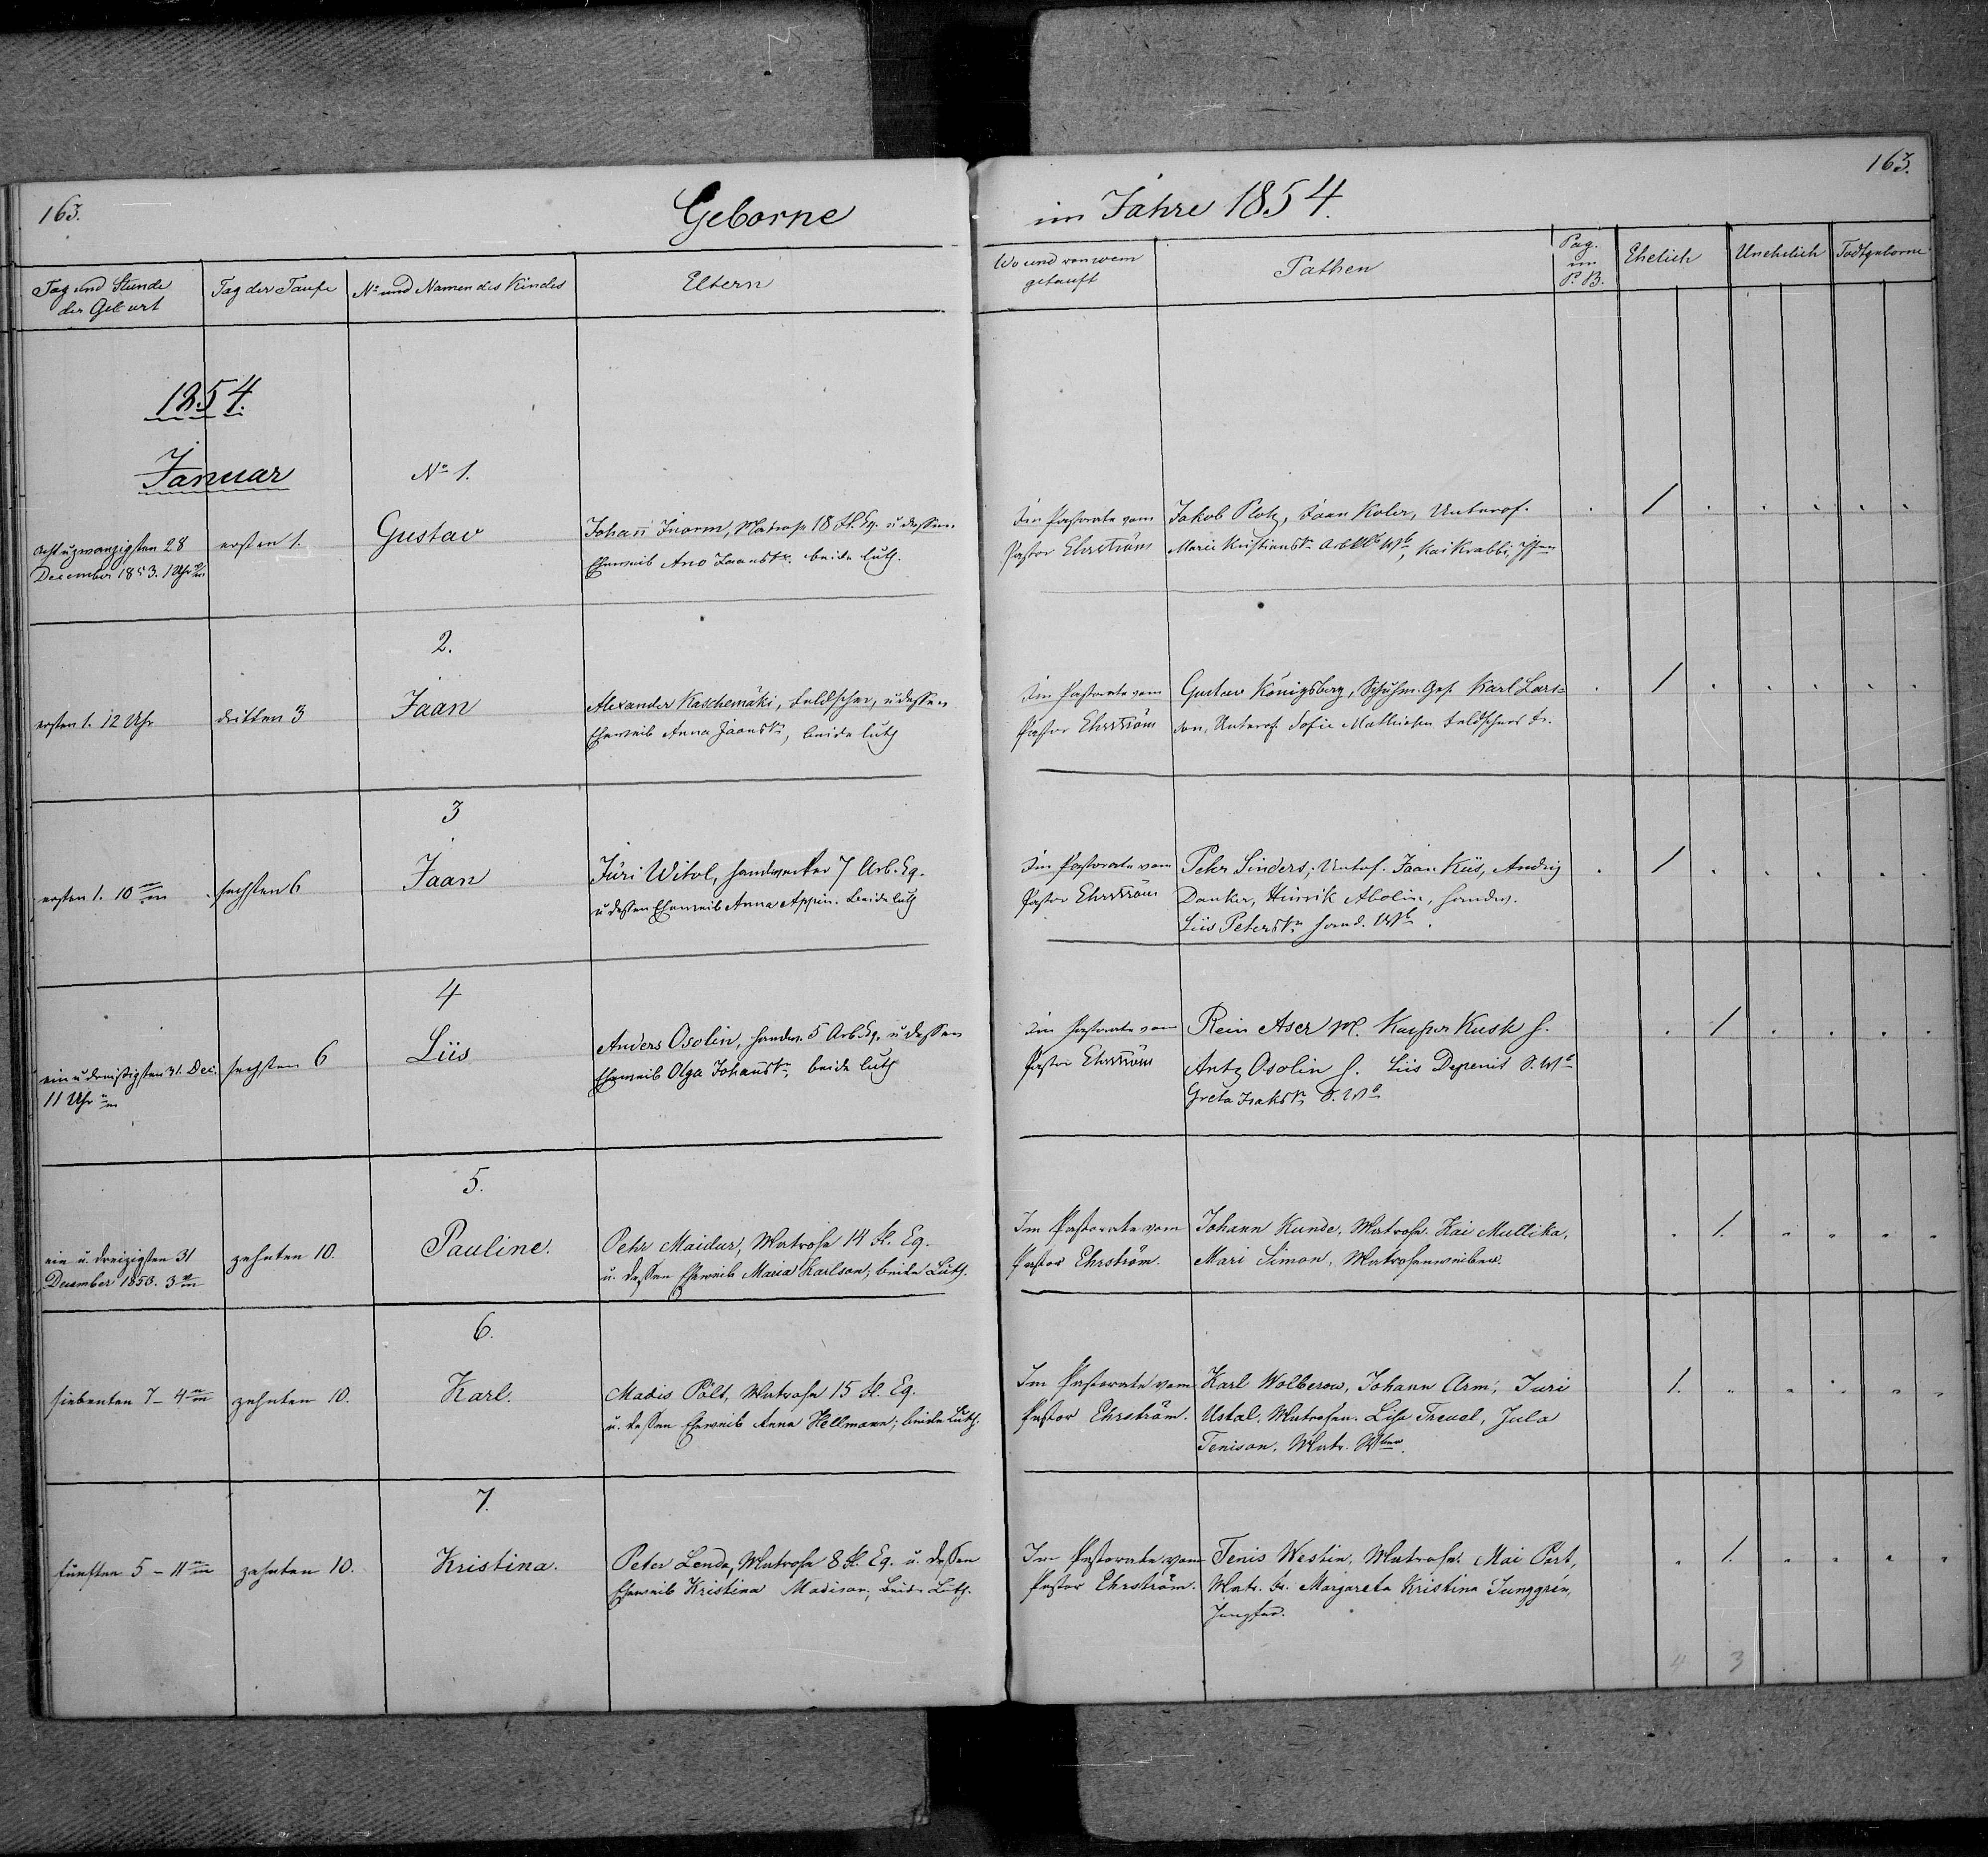 163.
Geborne
im Jahre 1854.
163.
Tag und Stunde
der Geburt
Tag der Taufe
No und Namen des Kindes
Eltern
Wo und von wem
getauft
Pathen
Pag.
im
P. B.
Ehelich
Unehelich
Todtgeborne
1854.
Januar
No 1.
acht u zwanzigsten 28
December 1853. 1 Uhr
ersten 1.
Gustav
Johann̄ Inorm, Matrose 18 Fl. Eq. u dessen
Eheweib Ano Jaanstr. beide luth.
Im Pastorate vom
Pastor Ehrström
Jakob Plotz, Jaan Koler, Unterof.
Marie Kristianstr. Kai Krabbi,
2.
ersten 1. 12 Uhr
dritten 3
Jaan
Alexander Kaschemäki, Feldscher, u dessen
Eheweib Anna Jaanstr, beide luth
Im Pastorate vom
Pastor Ehrström
Gustav Königsberg, Schuhm. Ges. Karl Lars=
son, Unterof. Sofie Mathiesen Feldschers Fr.
3
ersten 1. 10
sechsten 6
Jaan
Jüri Witol, Handwerker 7 Arb. Eq.
u dessen Eheweib Anna Appin. Beide luth
Im Pastorate vom
Pastor Ehrström
Peter Sinders, Untof. Jaan Küs, Andrig
Danker, Hinrik Abolin, Handw.
Liis Peterstr. Hand. Wb.
4
ein u dreissigsten 31. Dec.
11 Uhr
sechsten 6
Liis
Anders Osolin, Handw. 5 Arb Eq. u dessen
Eheweib Olga Johanstr, beide luth
Im Pastorate vom
Pastor Ehrström
Rein Aser M. Kasper Kusk H.
Antz Osolin H. Liis Depenit S. Wb
Greta Isakstr S. Wb
5.
ein u. dreizigsten 31
December 1853. 3
zehnten 10.
Pauline.
Petr Maidur, Matrose 14 Fl. Eq.
u. dessen Eheweib Maria Karlson, beide Luth.
Im Pastorate vom
Pastor Ehrström.
Johann Kunde, Matrose. Kai Mullika,
Mari Simon, Matrosenweiber.
6.
siebenten 7 – 4
zehnten 10.
Karl.
Madis Pält, Matrose 15 Fl. Eq.
u. dessen Eheweib Anna Hellmann, beide Luth.
Im Pastorate vom
Pastor Ehrström.
Karl Wolberow, Johann Arm, Juri
Ustal, Matrosen. Lisa Treual, Jula
Tenison, Matr. Wber.
7.
fünften 5 – 11
zehnten 10.
Kristina.
Peter Lenda, Matrose 8 Fl. Eq. u. dessen
Eheweib Kristina Madison, beide Luth.
Im Pastorate vom
Pastor Ehrström.
Tenis Westin, Matrose. Mai Part,
Matr. Fr. Margareta Kristina Junggrén,
Jungfer.
4
3